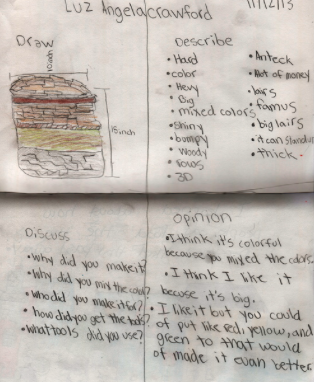 Luz Angela Crawford
11/12/13
Draw
10 inch
15 inch
Describe
• Hard
• color
• Hevy
• Big
• mixed colors
• Shiny
• bompy
• Woody
• rows
• 3D
• Anteck
• Not of money
• lairs
• famus
• big lairs
• it can stand
• thick.
Discuss
• why did you make it?
• Why did you mix the colors?
• who did you make it for?
• how did you get the tools?
• what tools did you use?
Opinion
• I think it's colorful
because you mixed the colors.
• I think I like it
becuse it's big.
• I like it but you could
of put like red, yellow, and
green to that would
of made it evan better